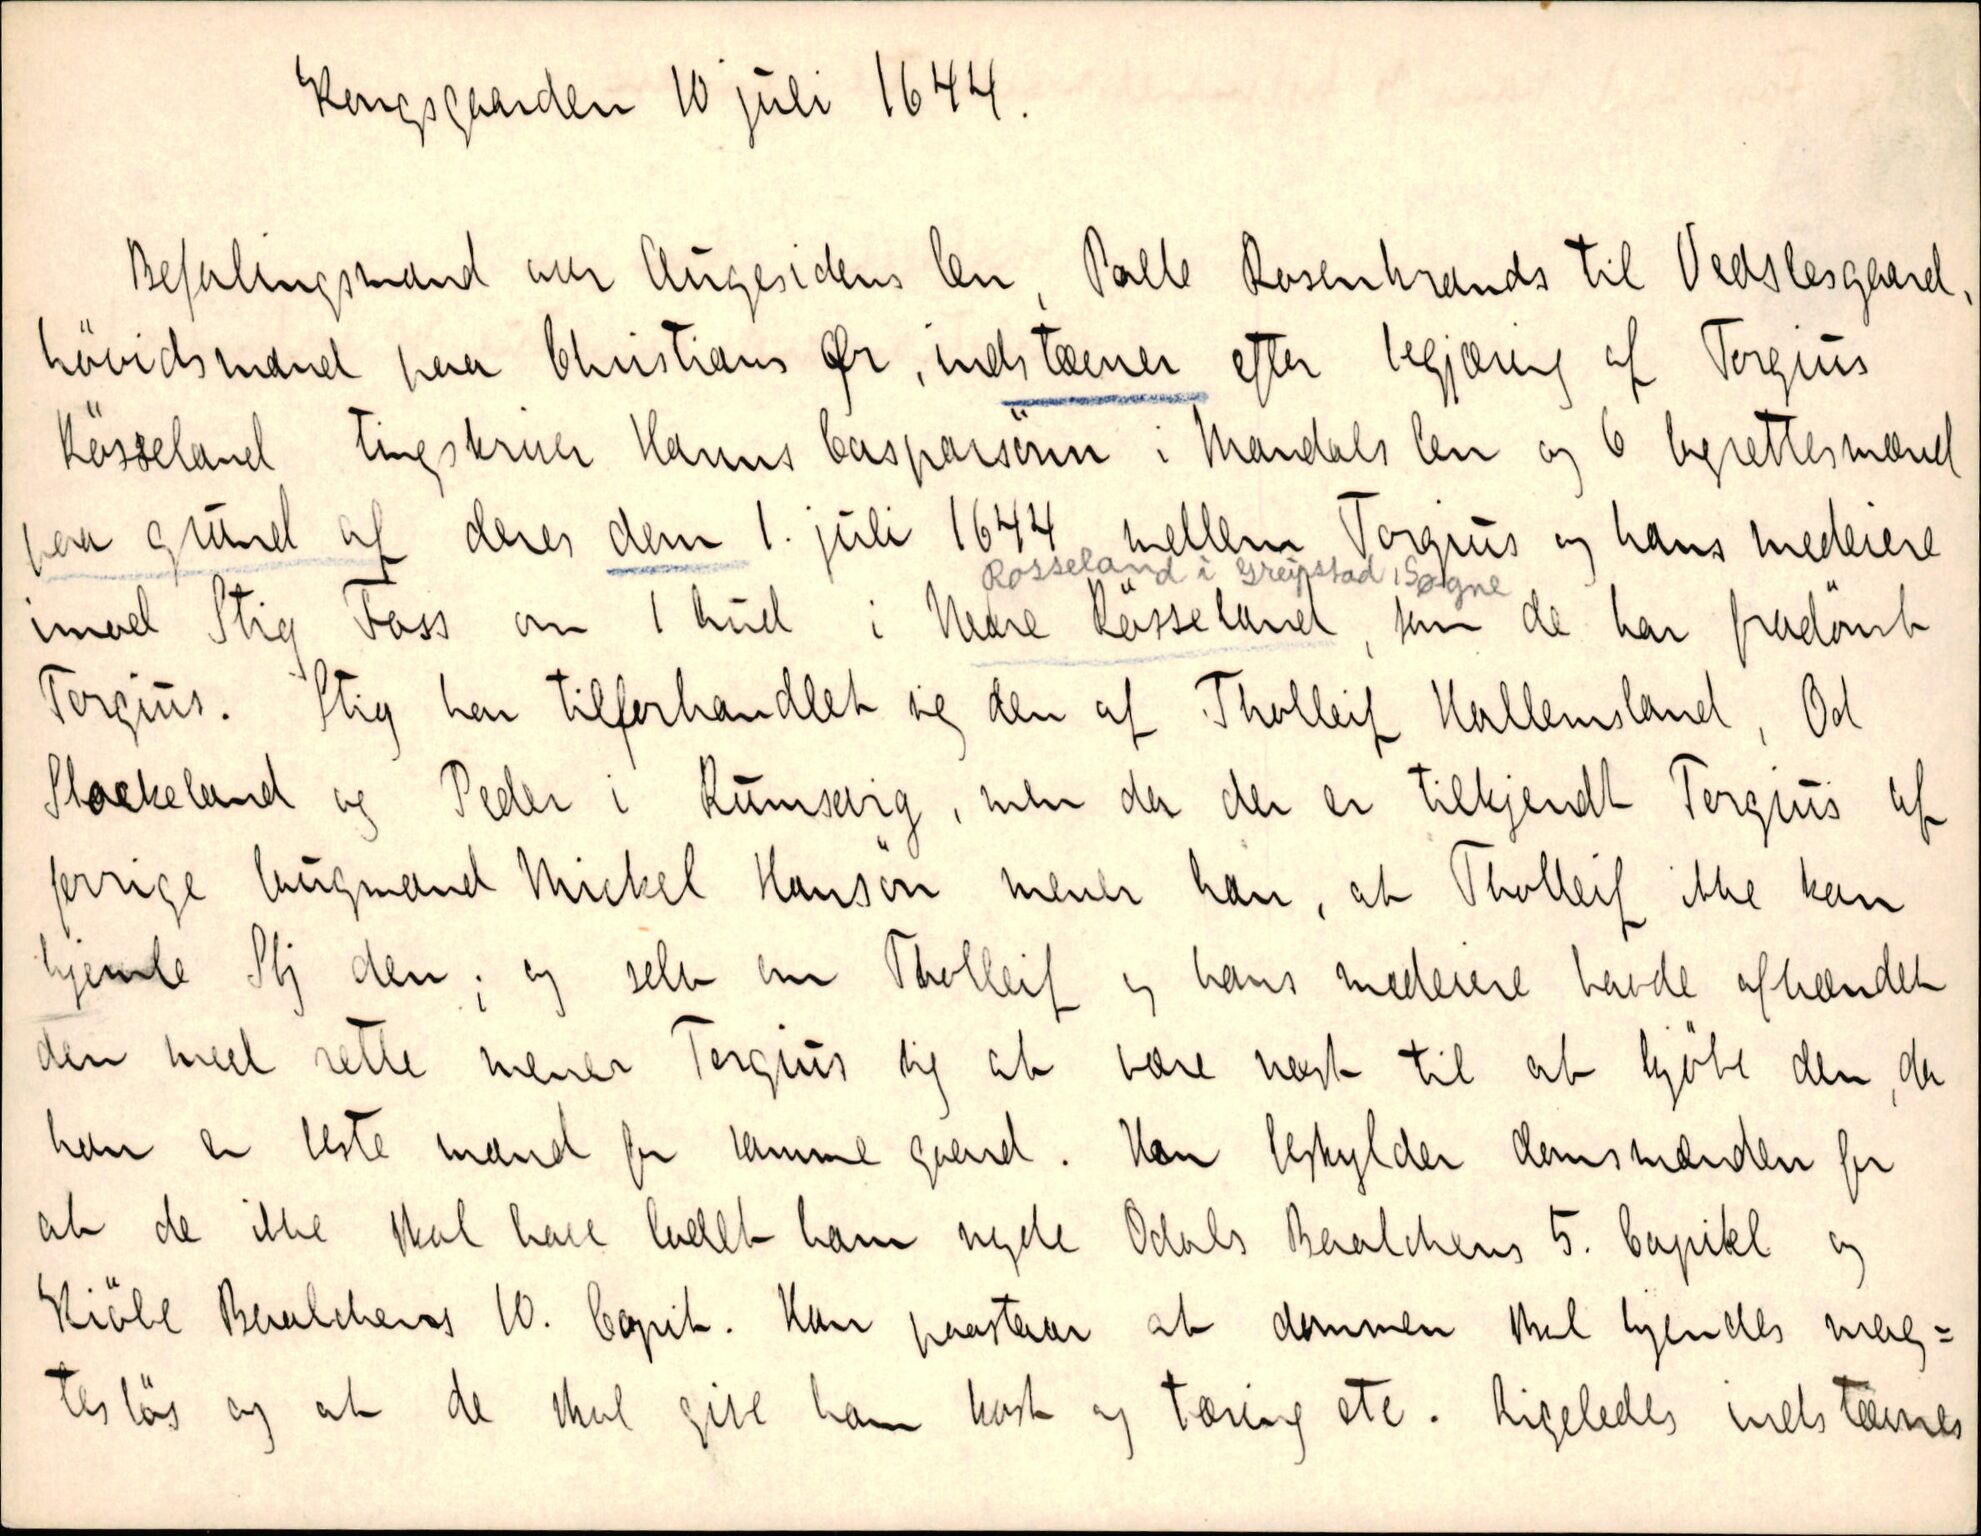 Kongsgaarden 10 juli 1644.
Befalingsmand over Augesidens len, Palle Rosenkrands til Vedslesgaard,
hövidsmand paa Christians Ør, indstæener efter begjæring af Torgius
Rösseland tingskriver Hanns Casparsönn i Mandals len og 6 lagrettesmænd
paa grund af deres dom 1. juli 1644 mellem Torgius og hans medeiere
Rosseland i Greipstad, Søgne
imod Stig Foss om 1 hud i Nedre Rösseland, som de har fradömt
Torgius. Stig har tilforhandlet sig den af Tholleif Hallemsland, Od
Stockeland og Peder i, men da den er tilkjendt Torgius af
forrige laugmand Mickel Hansön mener han, at Tholleif ikke kan
hjemle Stj den; og selv om Tholleif og hans medeiere havde afhændet
den med rette mener Torgius sig at være næst til at kjöbe den, da
han er beste mand for samme gaard. Han beskylder domsmænden for
at de ikke skal have ladet ham nyde Odals Baalchens 5. Capitel og
Kiöbe Baalchens 10. Capit. Han paastaar at dommen skal kjendes mag=
teslös og at de skal give ham kost og tæring etc. Ligeledes indstæenes